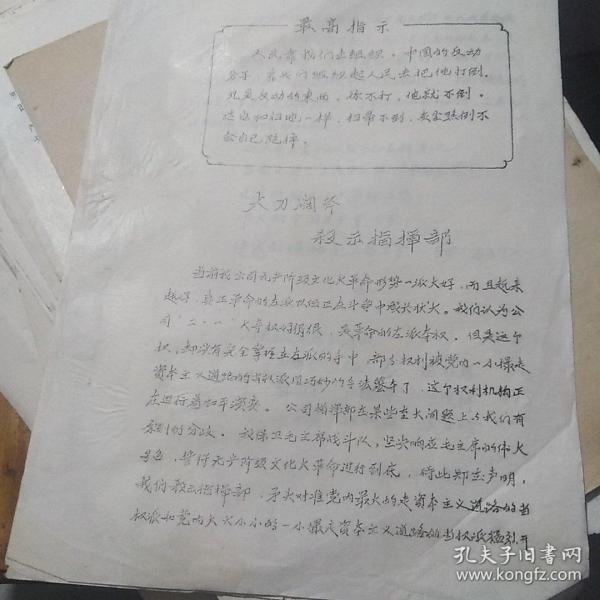 最高指示
人民靠我们去组织。中国的反动
分子,靠我们组织起人民去把他打倒。
凡是反动的东西,你不打,他就不倒。
这也和扫地一样,扫帚不到,灰尘照例不
会自己跑掉。
大刀阔斧
杀出指挥部
当前我公司无产阶级文化大革命形势一派大好,而且越来
越好,真正革命的左派队伍正在斗争中成长壮大。我们认为公
司"二·一"大夺权好得很,是革命的左派夺权。但是这个
权,却没有完全掌握在左派的手中,部分权利被党内一小撮走
资本主义道路的当权派用巧妙的手法篡夺了,这个权利机构正
在进行着和平演变。公司指挥部在某些重大问题上与我们有
原则的分歧。我保卫毛主席战斗队,坚决响应毛主席的伟大
号召,誓将无产阶级文化大革命进行到底,特此郑重声明,
我们杀出指挥部,矛头对准党内最大的走资本主义道路的当
权派和党内大大小小的一小撮走资本主义道路的当权派猛烈开
孔夫子旧书网
www.kongfz.com